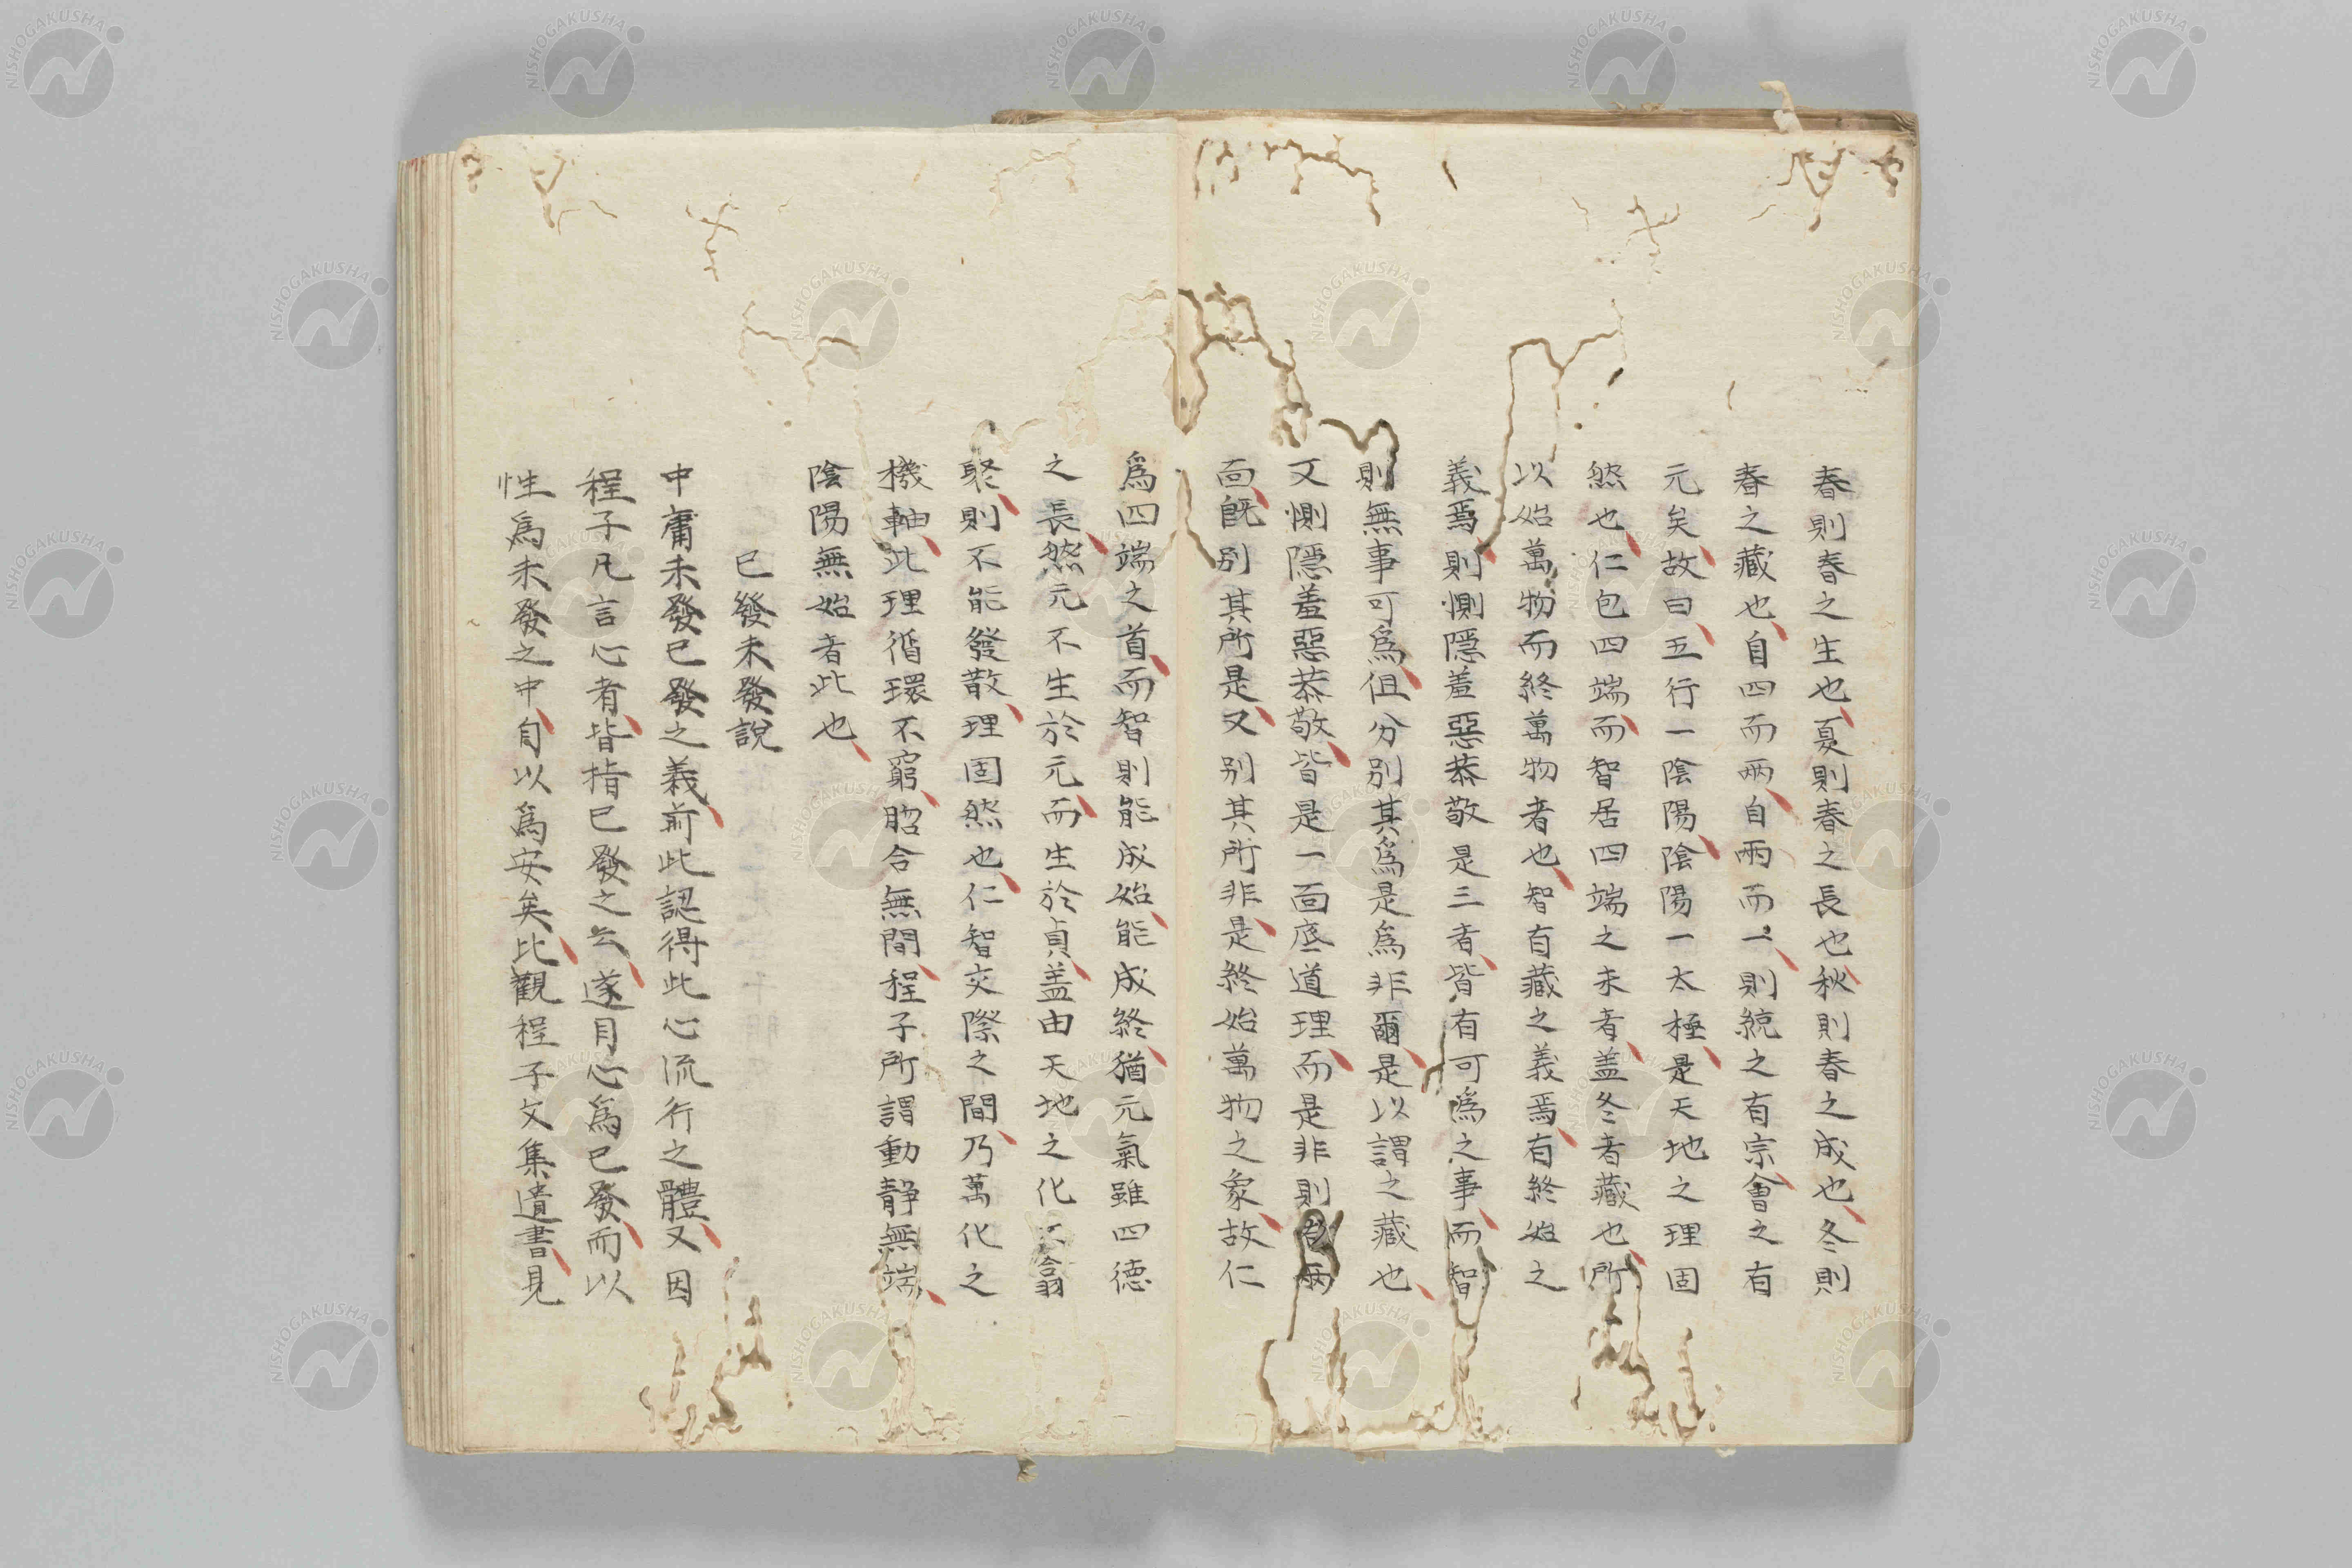 春則春之生也夏則春之長也秋則春之成也冬則
春之藏也自四而兩自兩而一則統之有宗會之有
元矣故曰五行一陰陽陰陽一太極是天地之理固
然也仁包四端而智居四端之末者盖冬者藏也所
以始萬物而終萬物者也智有藏之義焉有終始之
義焉則惻隱羞惡恭敬是三者皆有可爲之事而智
則無事可爲但分別其爲是爲非爾是以謂之藏也
又惻隱羞惡恭敬皆是一面底道理而是非則兩
面既別其所是又別其所非是終始萬物之象故仁
爲四端之首而智則能成始能成終猶元氣雖四德
之長然元不生於元而生於貞盖由天地之化不翕
聚則不能發散理固然也仁智交際之間乃萬化之
機軸此理循環不窮脗合無間程子所謂動靜無端
陰陽無始者此也
已發未發說
中庸未發已發之義前此認得此心流行之體又因
程子凡言心者皆指已發之云遂目心爲已發而以
性爲未發之中自以爲安矣比觀程子文集遺書見
NISHOGAKUSHA